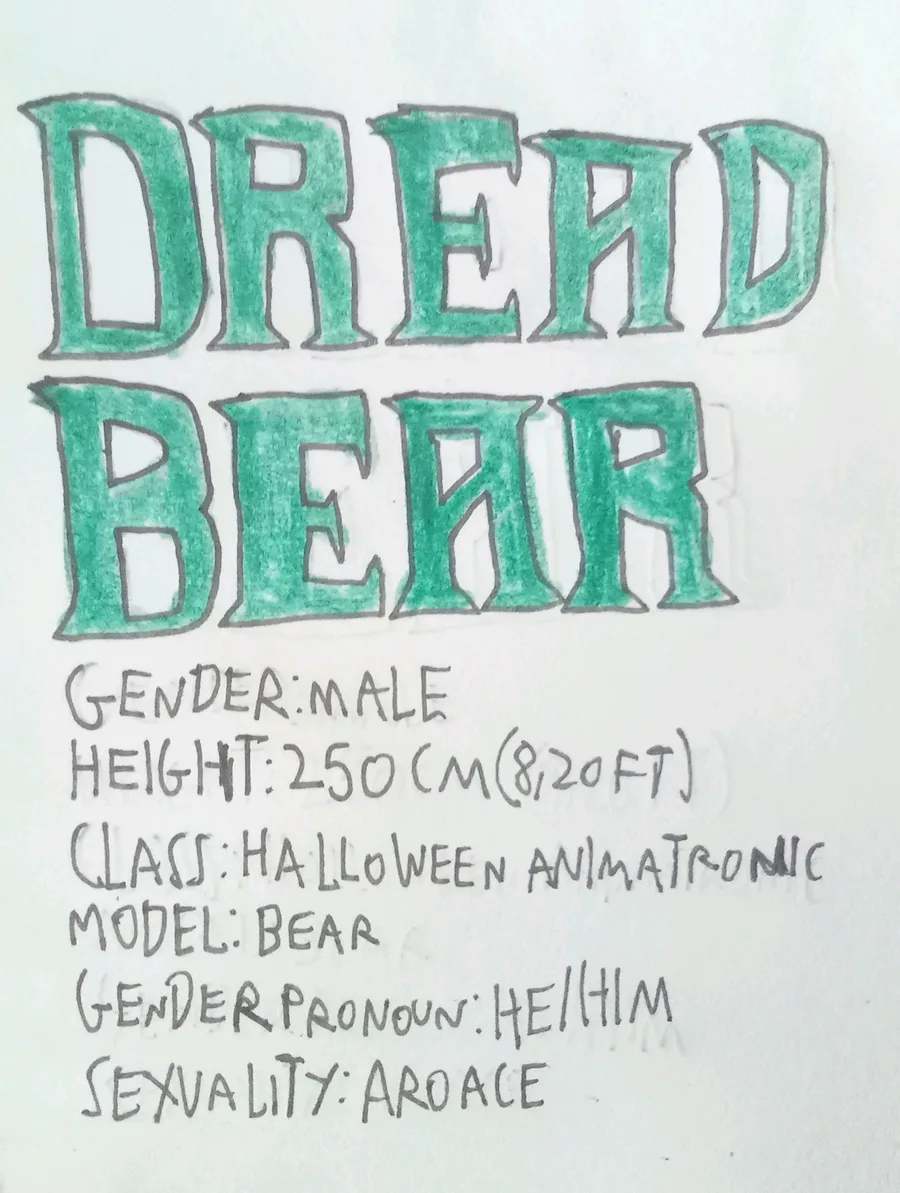 DREAD
BEAR
GENDER:MALE
HEIGHT:250 CM(8,20FT)
CLASS:HALLOWEEN ANIMATRONIC
MODEL:BEAR
GENDER PRONOUN:HE/HIM
SEXUALITY:AROACE